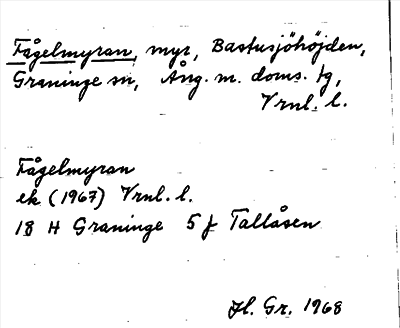 Fågelmyran, myr, Bastusjöhöjden,
Graninge sn, Ång. m. doms. tg,
Vrnl. l.
Fågelmyran
ek (1967) Vrnl. l.
18 H Graninge 5 f Tallåsen
Hl. Gr. 1968